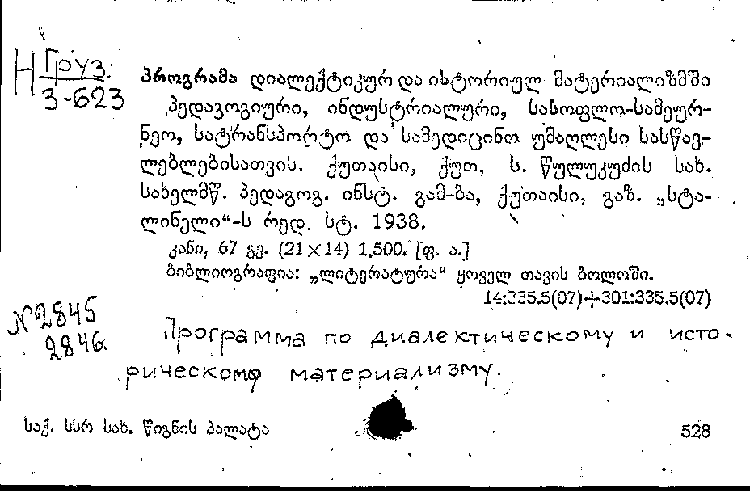 Н Груз.
3-623
პროგრამა დიალექტიკურ და ისტორიულ მატერიალიზმში
პედაგოგიური, ინდუსტრიალური, სასოფლო-სამეურ-
ნეო, სატრანსპორტო და სამედიცინო უმაღლესი სასწავ-
ლებლებისათვის. ქუთაისი, ქუთ. ს. წულუკუძის სახ.
სახელმწ. პედაგოგ. ინსტ. გამ-ბა, ქუთაისი, გაზ. „სტა-
ლინელი“-ს რედ. სტ. 1938.
კანი, 67 გვ. (21×14) 1.500. [ფ. ა.]
ბიბლიოგრაფია: „ლიტერატურა“ ყოველ თავის ბოლოში.
14:335.5(07)+301:335.5(07)
№2845
2846
Программа по диалектическому и исто-
рическому материализму.
საქ. სსრ სახ. წიგნის პალატა
528